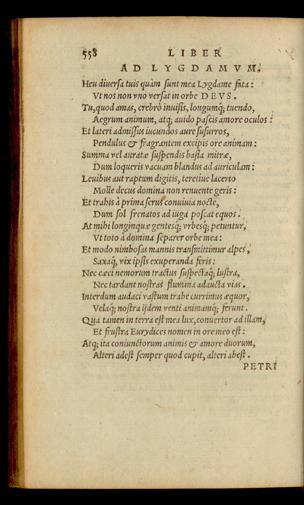 558 LIBER
AD LYGDAMVM.
Heu diuersa tuis quàm sunt mea Lygdame fata:
Vt nos non vno versat in orbe DEVS.
Tu, quod amas, crebrò inuisis, longumq; tuendo,
Aegrum animum, atq; auido pascis amore oculos:
Et lateri admissus iucundos aure susurros,
Pendulus & fragrantem excipis ore animam:
Summa vel auratæ suspendis basia mitræ,
Dum loqueris vacuam blandus ad auriculam:
Leuibus aut raptum digitis, teretiue lacerto
Molle decus domina non renuente geris:
Et trahis à prima serus conuiuia nocte,
Dum sol frenatos ad iuga poscat equos.
At mihi longinquæ gentesq; vrbesq; petuntur,
Vt toto à domina separer orbe mea:
Et modo nimbosas mannis transmittimur alpes,
Saxaq, vix ipsis exuperanda feris:
Nec cæci nemorum tractus suspectaq; lustra,
Nec tardant nostras flumina adaucta vias.
Interdum audaci vastum trabe currimus æquor,
Velaq; nostra ijdem venti animamq; ferunt.
Qua tamen in terra est mea lux, conuertor ad illam,
Et frustra Eurydices nomen in ore meo est:
Atq; ita coniunctorum animis & amore duorum,
Alteri adest semper quod cupit, alteri abest.
PETRI